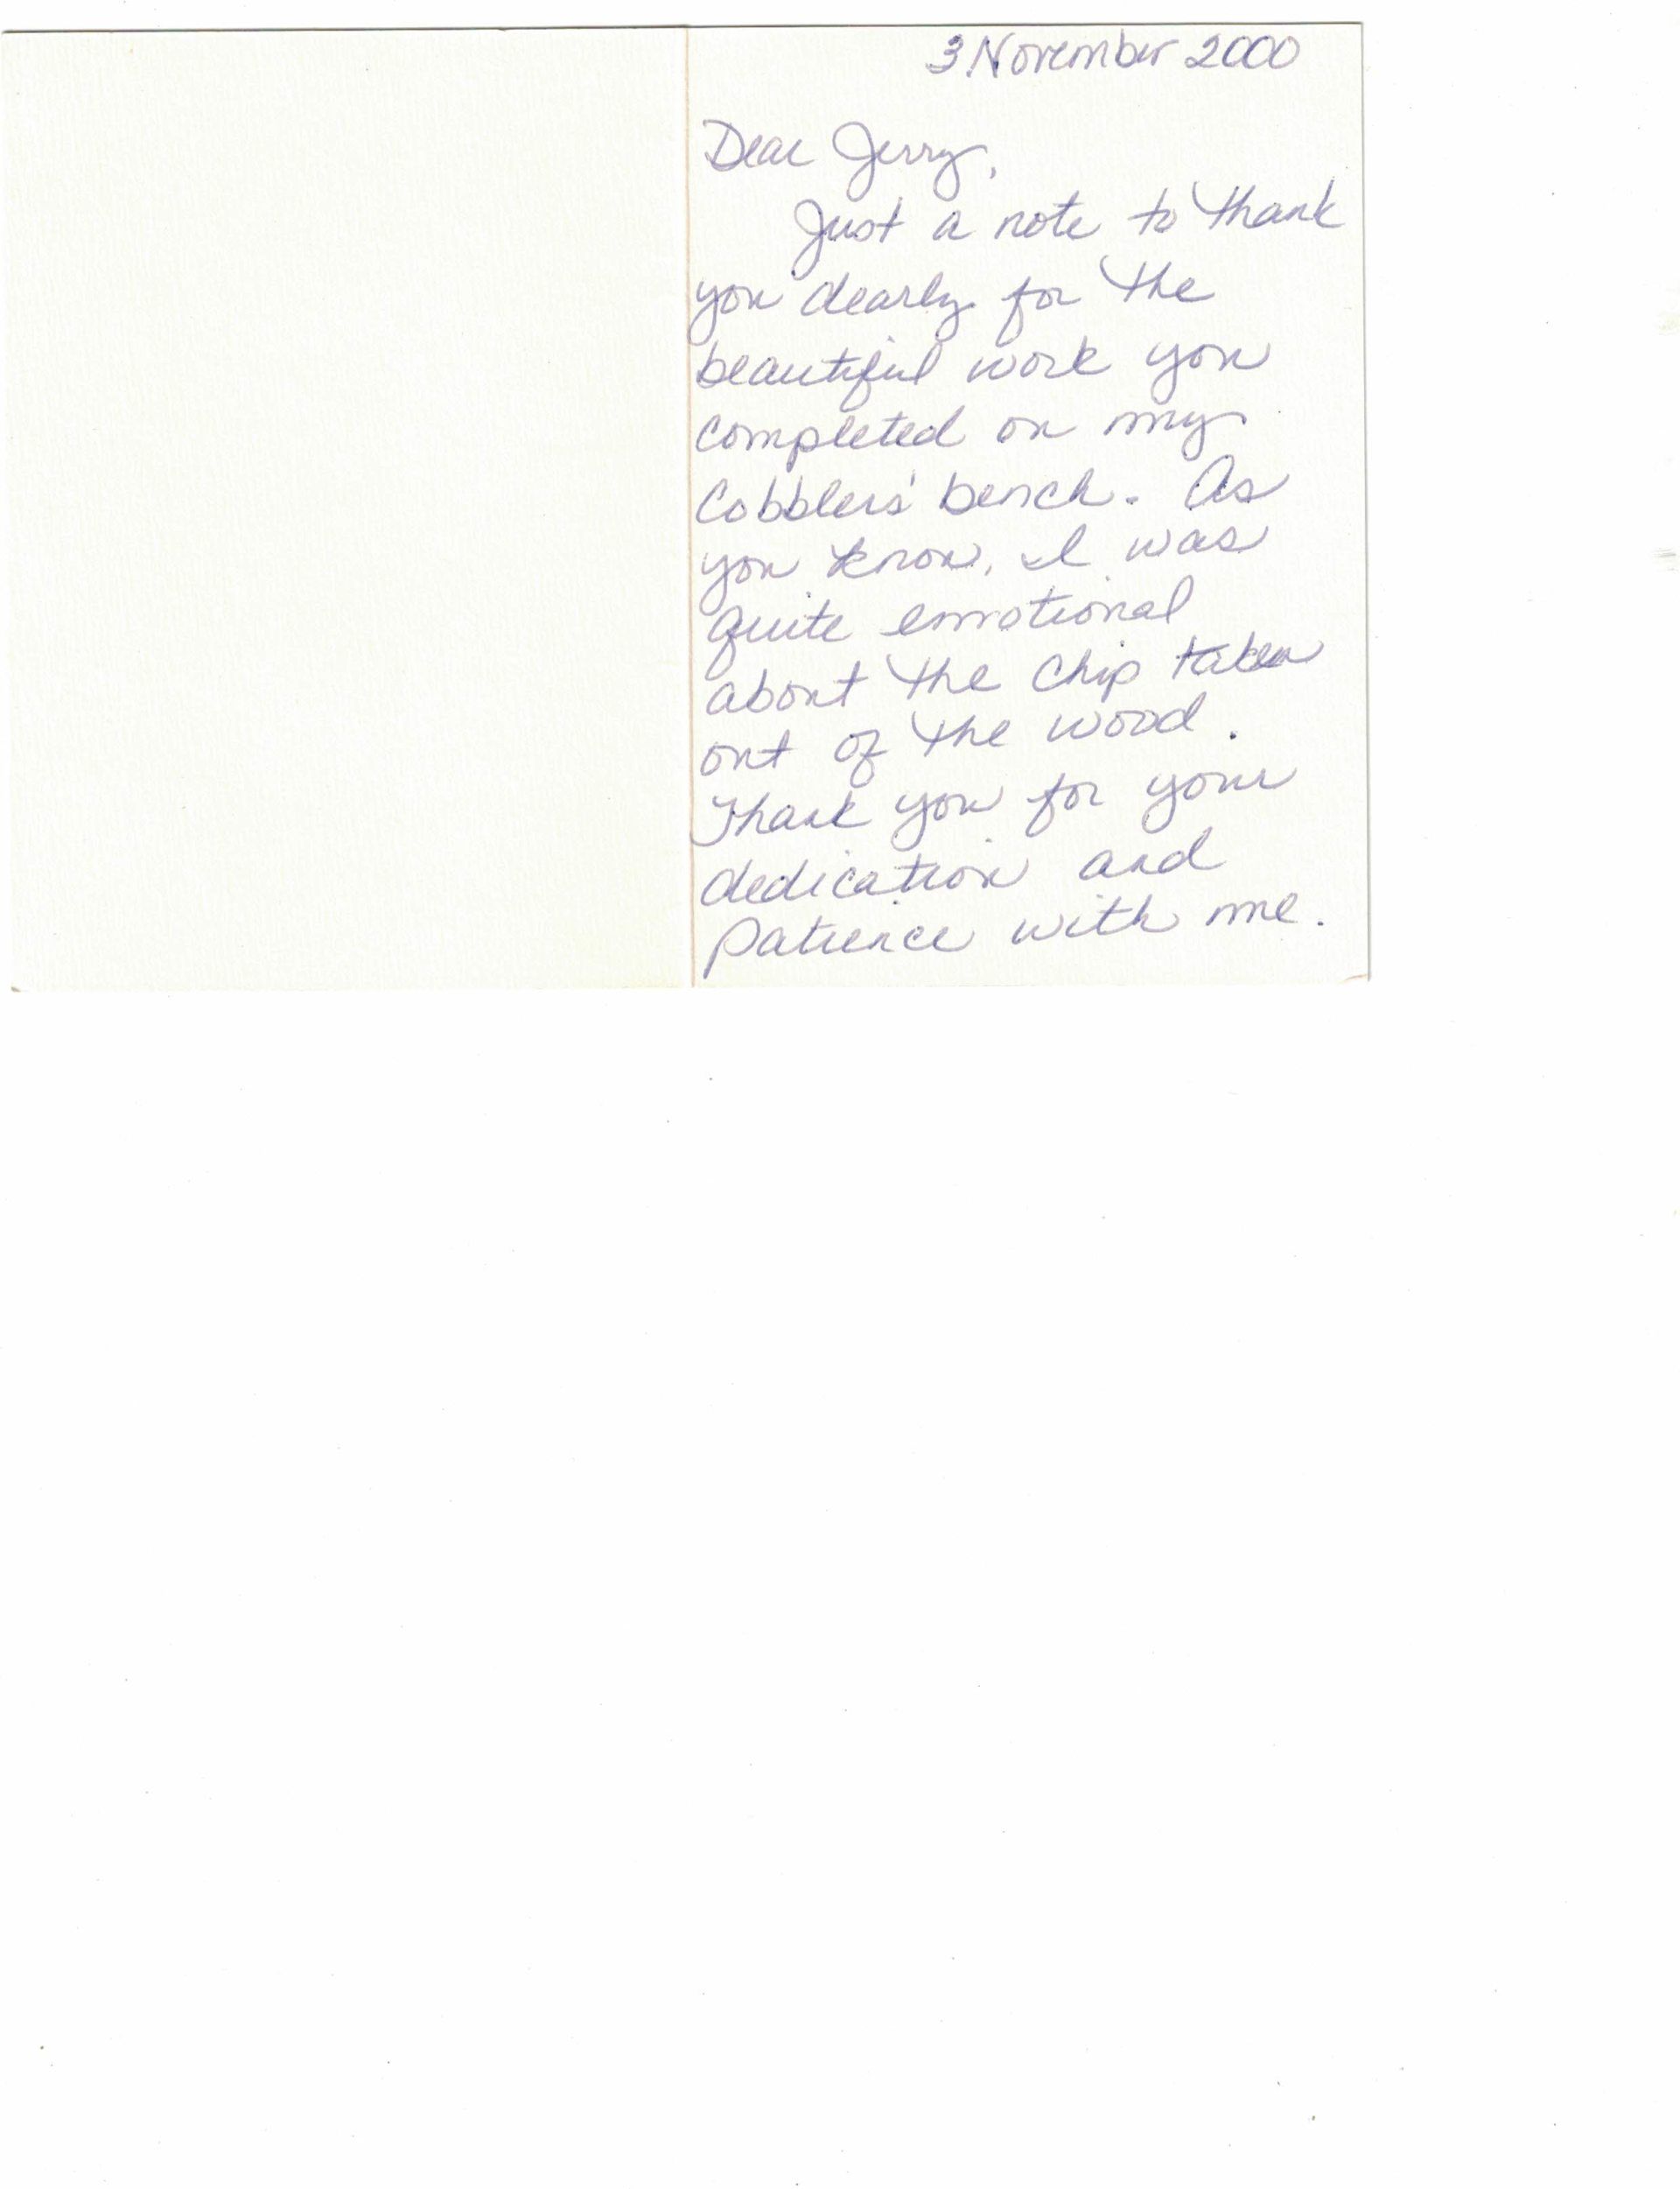 3 November 2000
Dear Jerry,
Just a note to thank
you dearly for the
beautiful work you
completed on my
Cobblers' bench. As
you know, I was
quite emotional
about the chip taken
out of the wood.
Thank you for your
dedication and
patience with me.